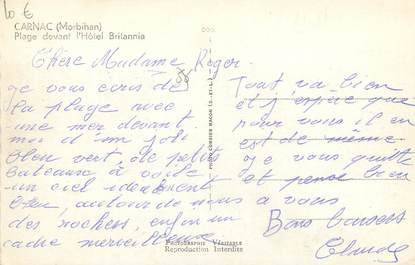 10 €
CARNAC (Morbihan)
Plage devant l'Hôtel Britannia
Chère Madame Roger
je vous écris de
la plage avec
une mer devant
moi d'un joli
bleu vert, de petits
bateaux à voile
un ciel idéalement
bleu, autour de nous
des rochers, enfin un
cadre merveilleux
Tout va bien
et j'espère que
pour vous il en
est de même
je vous quitte
et pense bien
à vous
Bons baisers
Claude
PHOTOGRAPHIE VÉRITABLE
Reproduction Interdite